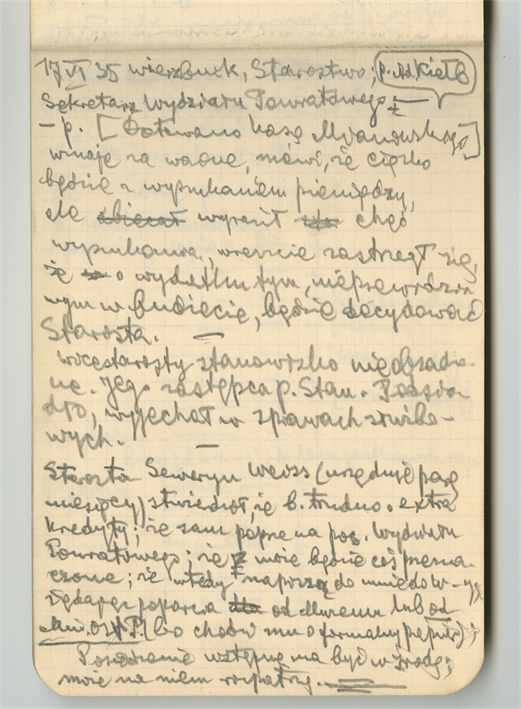 17 VI 35 Wierzbnik, Starostwo; p. Ad. Kiełb
Sekretarz Wydziału Powiatowego;
– p. [Ratowano Kasę Mianowskiego]
uznaje za ważne, mówi, że ciężko
będzie z wyszukaniem pieniędzy,
ale obiecał wyraził chęć
wyszukania, wreszcie zastrzegł się,
że o wydatku tym, nieprzewidzia
nym w budżecie, będzie decydować
Starosta. –
Wicestarosty stanowisko nieobsadzo-
ne. Jego zastępca p. Stan.
wyjechał w sprawach służbo-
wych. –
Starosta Seweryn Weiss (urzęduje parę
miesięcy) stwierdził, że b. trudno o extra
kredyty; że sam poprze na pos. Wydziału
Powiatowego; że może będzie coś przezna-
czone; że wtedy napiszą do mnie do W-wy
żądając poparcia od
(bo chodzi mu o formalny papier);
Posiedzenie wstępne ma być w środę;
może na niem rozpatrzy.